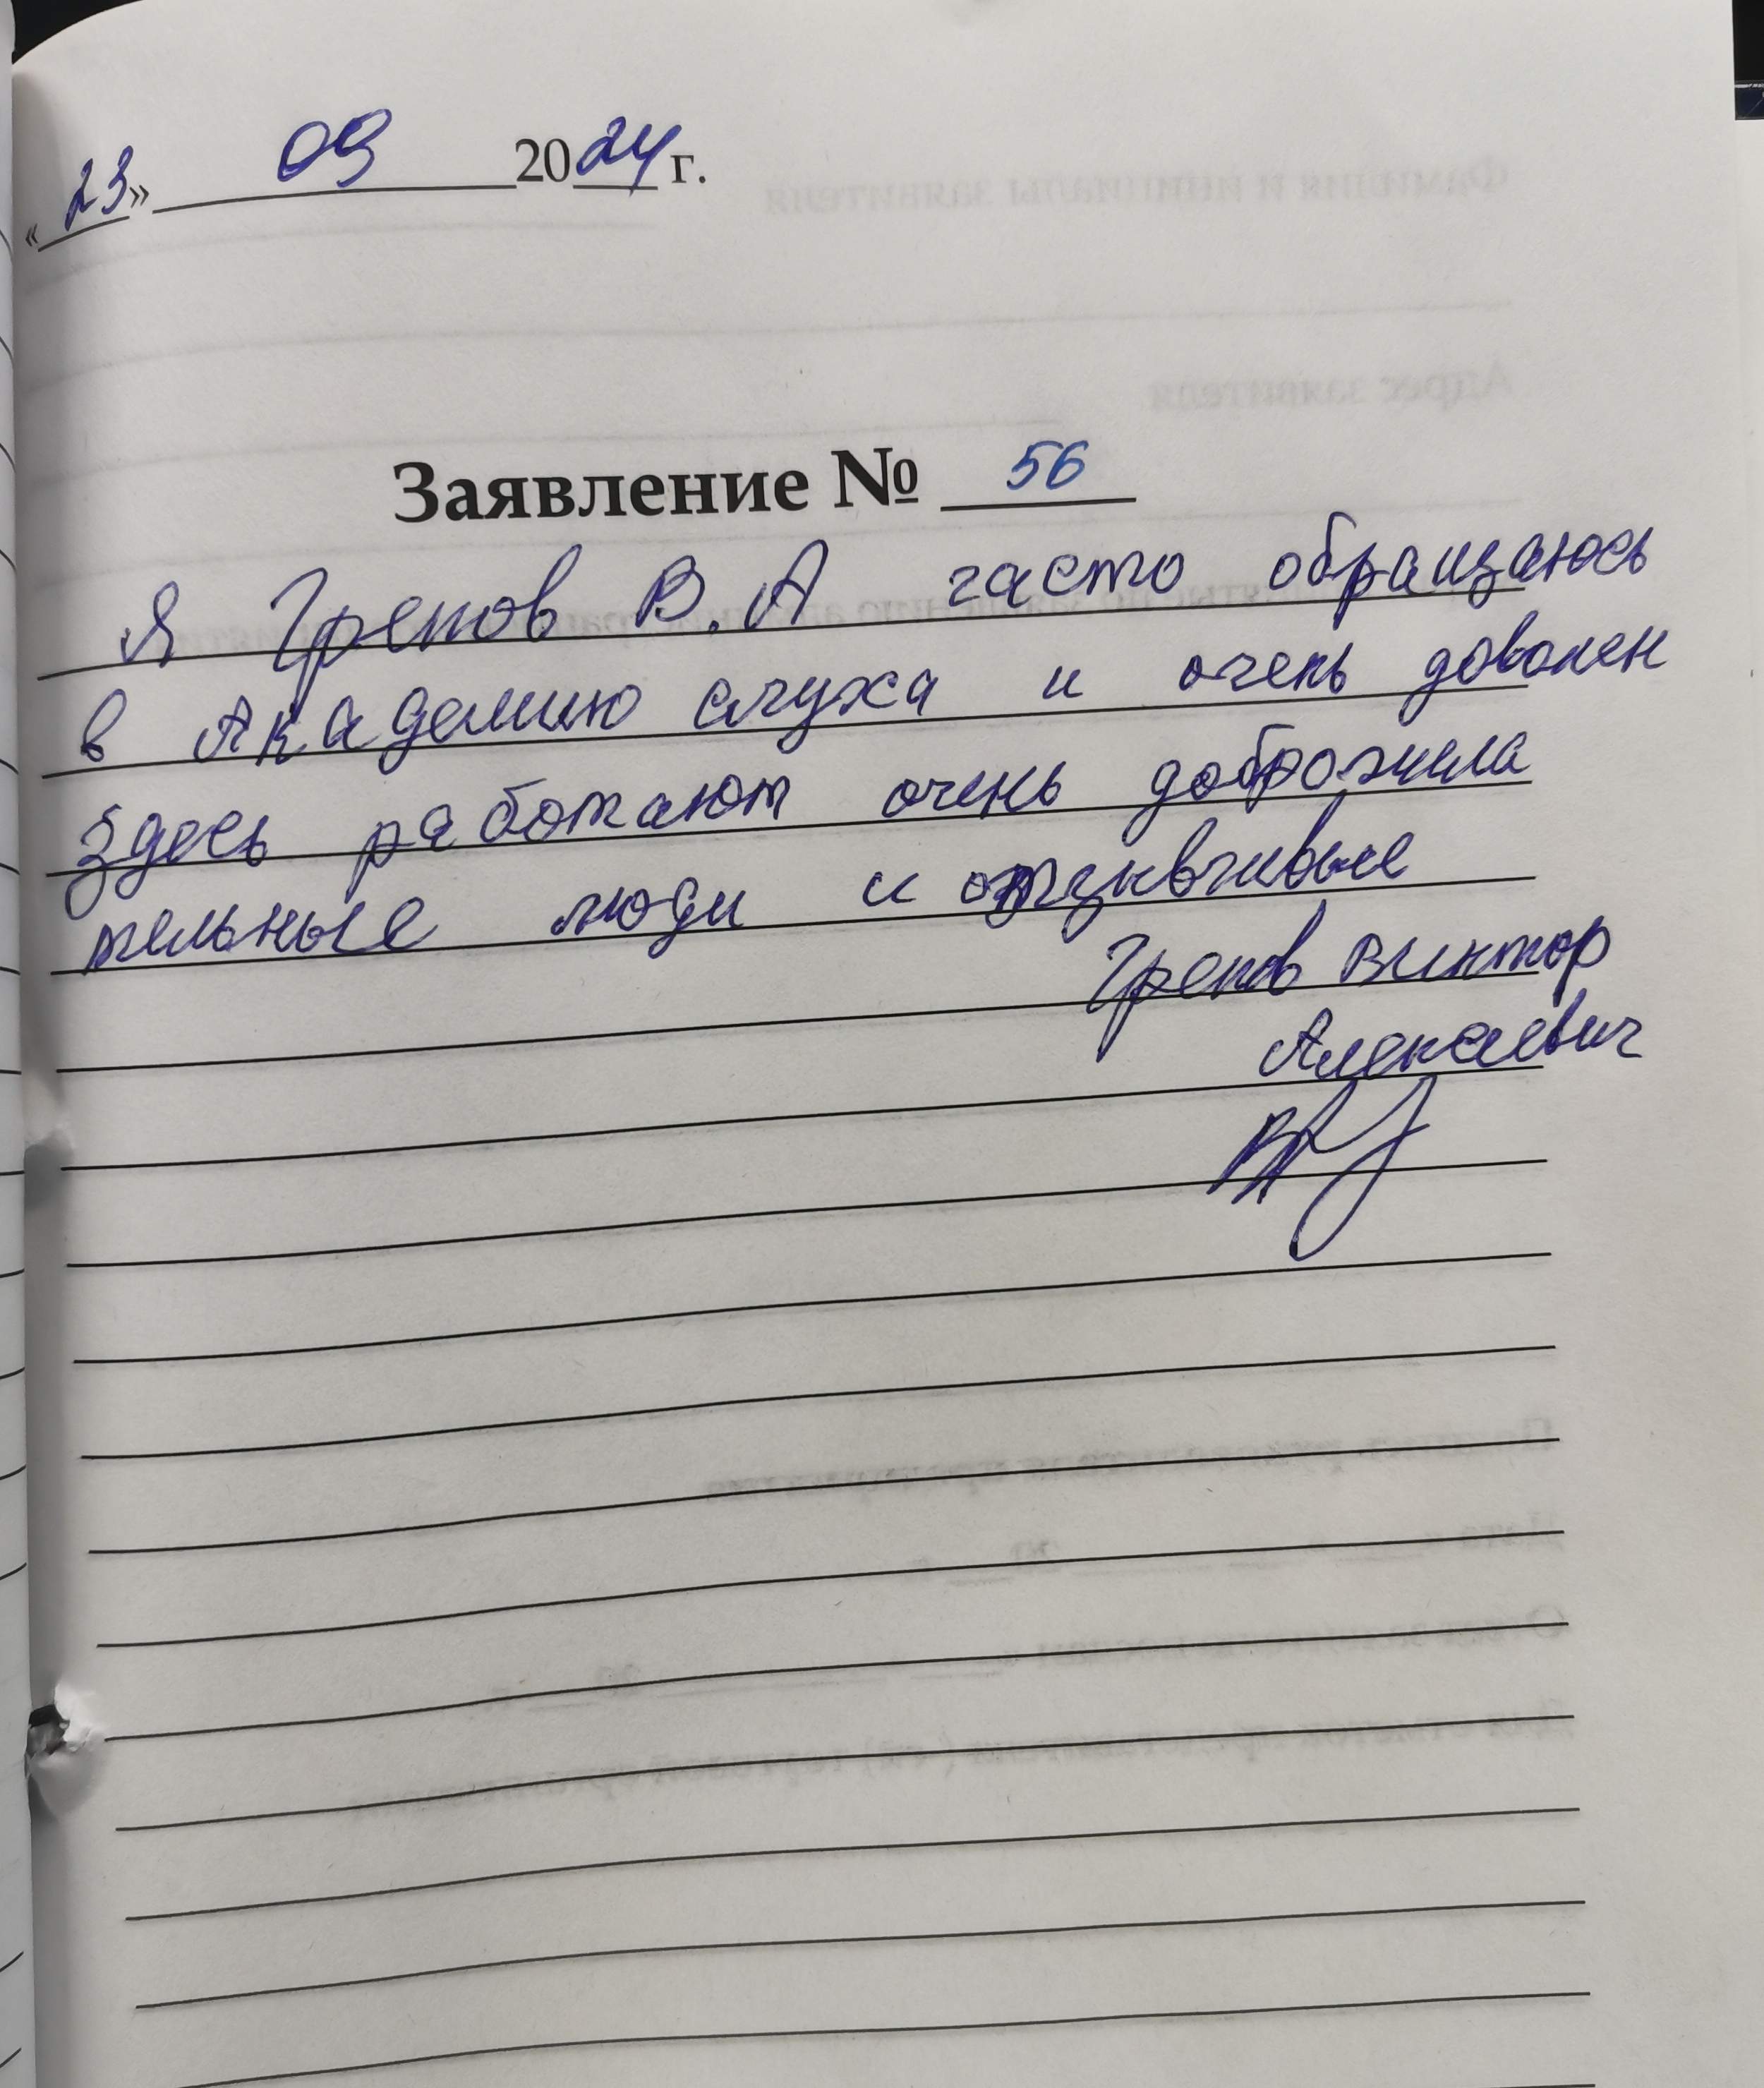 «23» 09 2024 г.
Заявление № 56
Я Грепов В.А часто обращаюсь
в Академию слуха и очень доволен
Здесь работают очень доброжила
тельные люди и отзывчивые
Грепов Виктор
Алексеевич